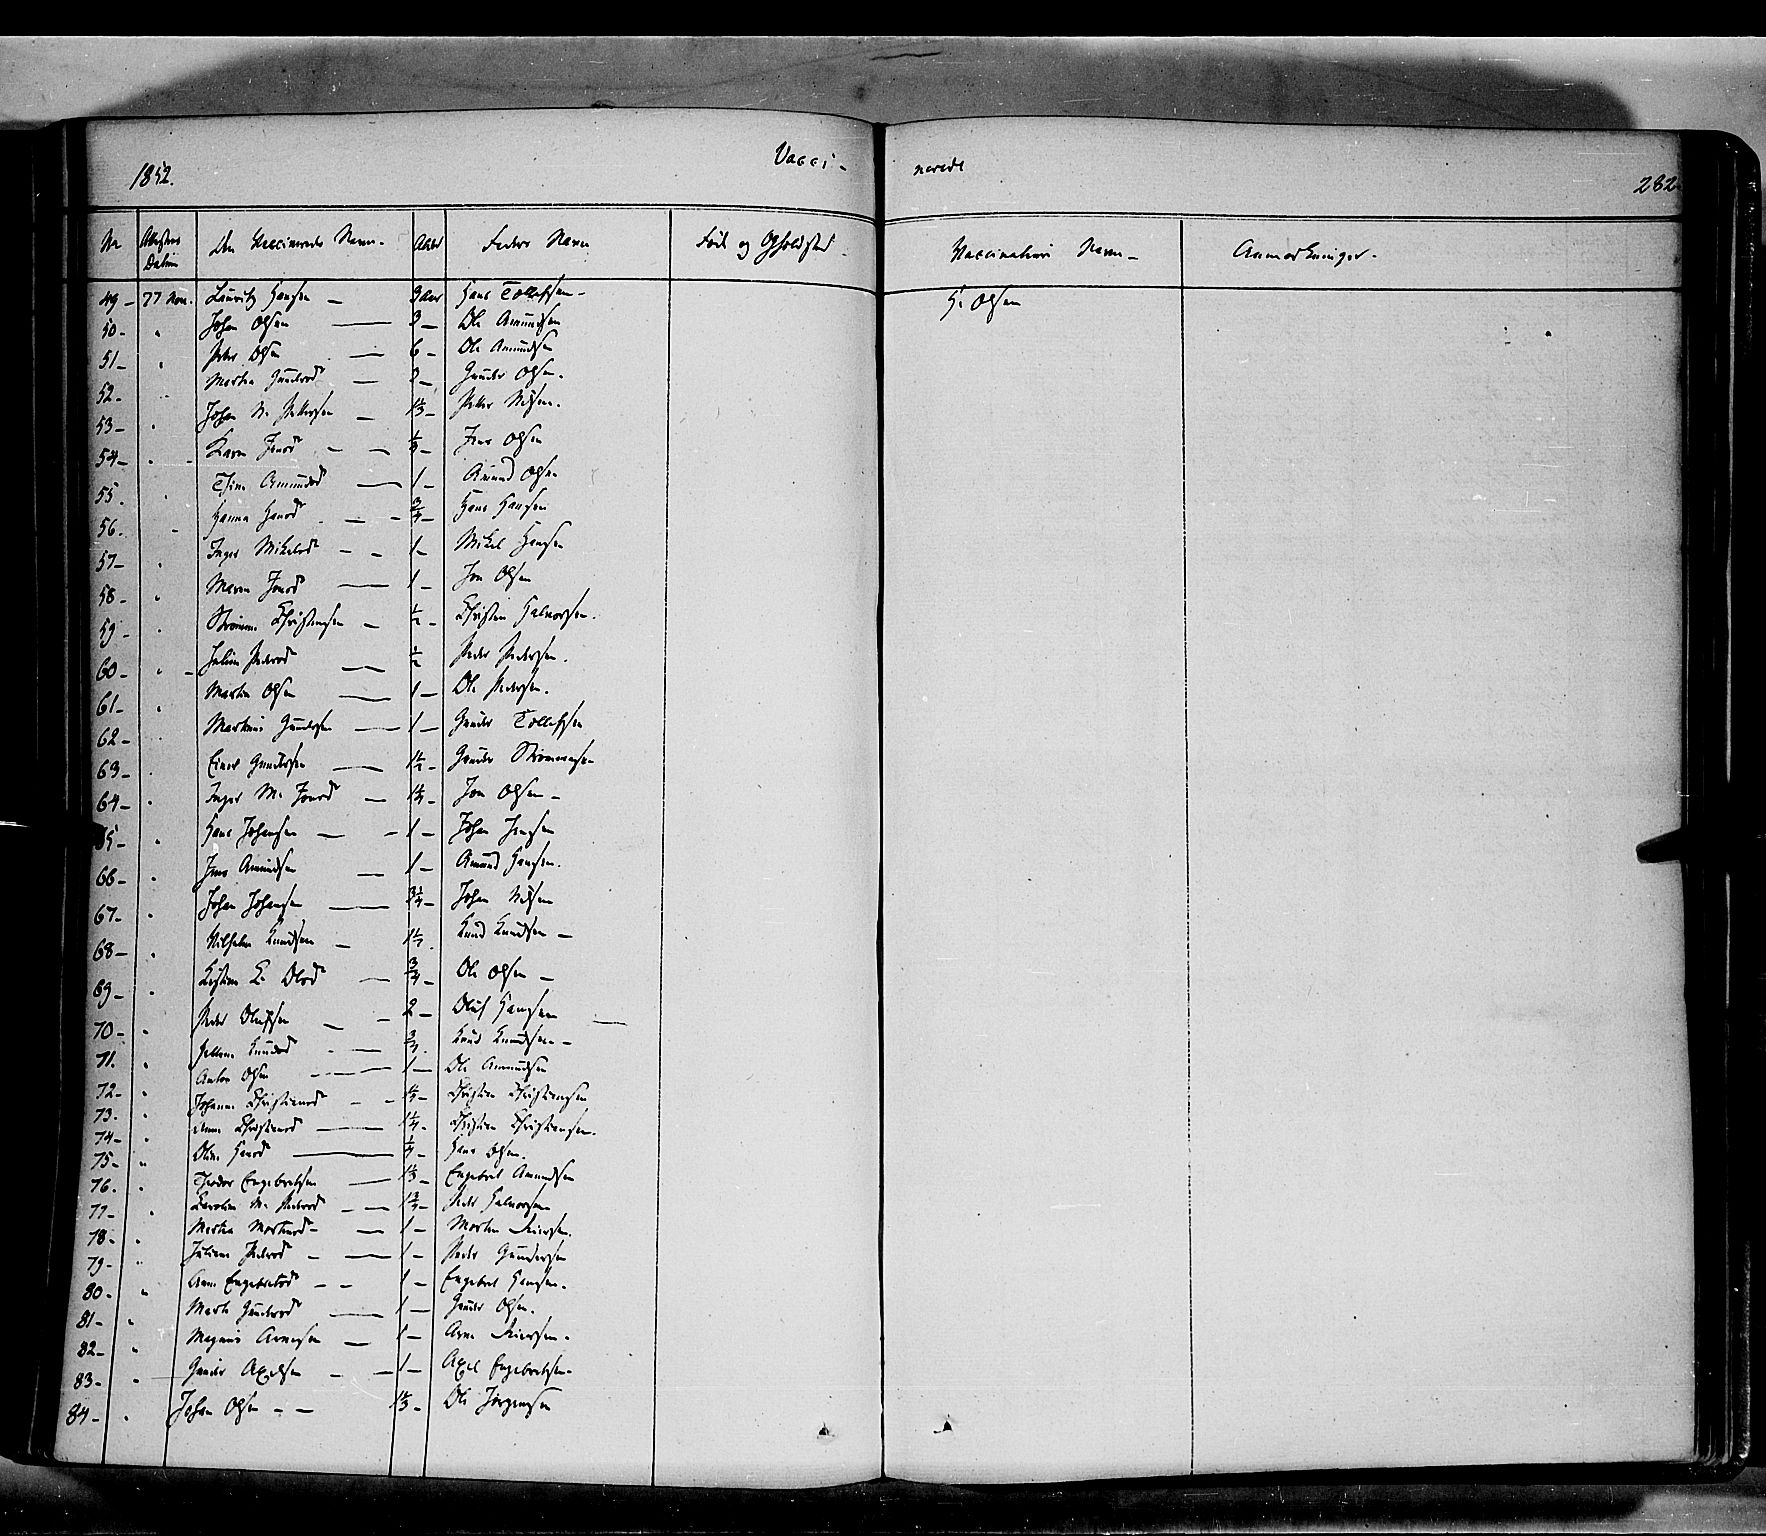 1852. Vacci- nerede 282.
No Attestens Datum Den Vaccineredes Navn. Alder Faders Navn Føde og Opholdsted Vaccinateurs Navn Anmærkninger.
49 77 Nov. Lauritz Hansen 3 Aar Hans Tollefsen H. Olsen
50 " Johan Olsen 3 Ole Amundsen
51 " Peter Olsen 6 Ole Amundsen
52 " Marthe Gundersd 3 Gunder Olsen.
53 " Johan N. Pettersen 1 1/3 Petter Nilsen.
54 " Karen Jensd Jens Olsen
55 " Thine Amundsd 1 Amund Olsen
56 Hanna Hansd 3/4 Hans Hansen
57 " Inger Mikelsd 1 Mikel Hansen
58 " Maren Jonsd 1 Jon Olsen
59 " Christensen 1/2 Christen Halvorsen.
60 " Juline Pedersd 1/2 Peder Pedersen.
61 " Martin Olsen 1 Ole Pedersen.
62 Martinus Gundersen 1 Gunder Tollefsen
63 Einer Gundersen 1 1/2 Gunder
64 " Inger M. Jonsd 1 1/4 Jon Olsen
65 " Hans Johansen 1 Johan Jensen
66 " Jens Amundsen 1 Amund Hansen.
67 " Johan Johansen 3 1/4 Johan Nilsen
68 " Vilhelm Knudsen Knud Knudsen
69 " Olsd 3/4 Ole Olsen
70 " Peder Olufsen 2 Oluf Hansen
71. " Knudsd 3/4 Knud Knudsen
72 " Anton Olsen 1 Ole Amundsen
73. " Johanne Christiansd 1 1/4 Christian Christiansen
74 " Anne Christiansd 1 1/4 Christian Christiansen.
75 " Oline Hansd 1/4 Hans Olsen.
76. " Theodor Engebretsen 1 1/3 Engebret Amundsen
77 " Karoline M. Pedersd 1 3/4 Peder Halvorsen
78 " Marthe Mortensd 1 Morten
79 " Juliane Pedersd 1 Peder Gundersen
80 " Anne Engebretsd 1 Engebret Hansen.
81 " Marte Gundersd 1 Gunder Olsen.
82 " Magnus Arnesen 1 Arne
83 " Gunder Axelsen 1 Axel Engebretsen.
84 " Johan Olsen 1 1/3 Ole Jørgensen